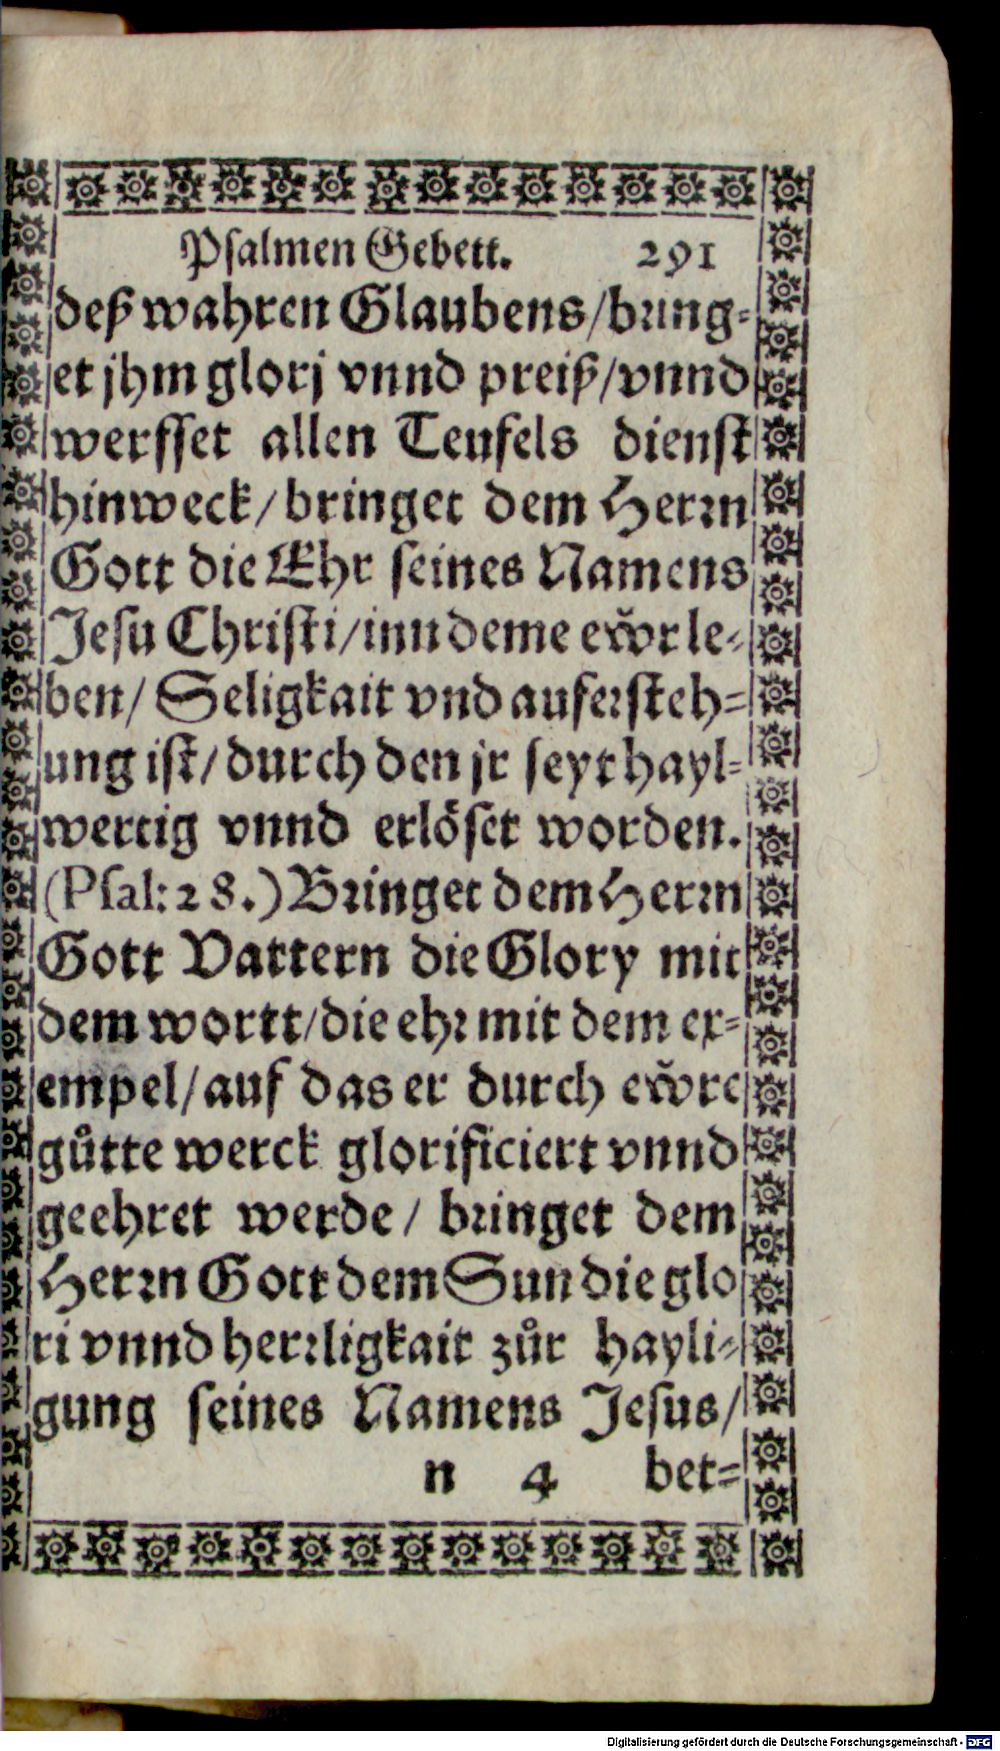 Psalmen Gebett. 291
deß wahren Glaubens/bring-
et jhm glorj vnnd preiß/vnnd
werffet allen Teufels dienst
hinweck/bringet dem Herrn
Gott die Ehr seines Namens
Jesu Christi/inn deme ew̌r le-
ben/ Seligkait vnd aufersteh-
ung ist/durch den jr seyt hayl-
wertig vnnd erlöset worden.
(Psal: 28.) Bringet dem Herrn
Gott Vattern die Glory mit
dem wortt/die ehr mit dem ex-
empel/auf das er durch ew̌re
gůtte werck glorificiert vnnd
geehret werde/ bringet dem
Herrn Gott dem Sun die glo
ri vnnd herrligkait zůr hayli-
gung seines Namens Jesus/
n 4 bet-
Digitalisierung gefördert durch die Deutsche Forschungsgemeinschaft - DFG